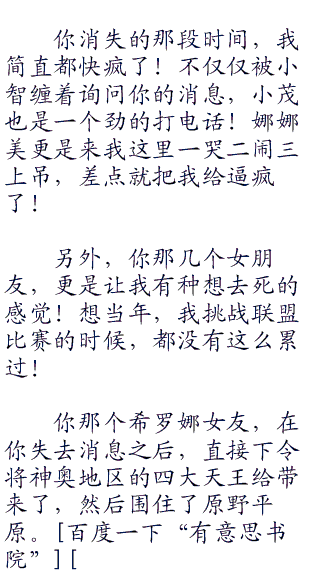 你消失的那段时间，我
简直都快疯了！不仅仅被小
智缠着询问你的消息，小茂
也是一个劲的打电话！娜娜
美更是来我这里一哭二闹三
上吊，差点就把我给逼疯
了！
另外，你那几个女朋
友，更是让我有种想去死的
感觉！想当年，我挑战联盟
比赛的时候，都没有这么累
过！
你那个希罗娜女友，在
你失去消息之后，直接下令
将神奥地区的四大天王给带
来了，然后围住了原野平
原。[百度一下“有意思书
院”][